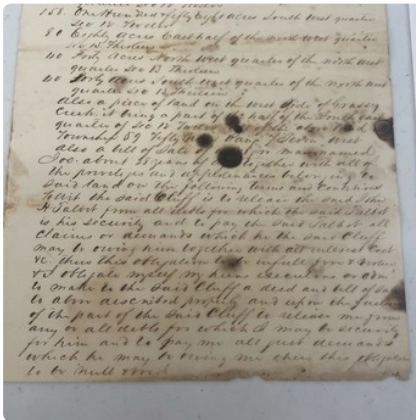 158. One Hundred & fifty eight acres South West quarter
Sec 12 Twelve
80 Eighty acres East half of the north West quarter
Sec 13 Thirteen
40 Forty Acres North West quarter of the north West
quarter Sec 13 Thirteen
40 Forty Acres South West quarter of the north West
quarter Sec 13 Thirteen
Also a piece of land on the West side of Grassy
Creek it being a part of half of the South East
quarter of Sec 12 Twelve of the above
Township 59 Fifty West
also a bill of Sale for man named
Joe about 28 years of together with all of
the priveliges and belonging to
Said land on the following terms and Conditions
towit the said Cluff is to release the said John
H Talbot from all debts for which the said Talbot
is his security and to pay the said Talbot all
claims or demands which he the said Cluff
may be owing him together with all interest Cost
&c then this obligation to be in full force &
& I obligate myself my heirs executors or
to make to the Said Cluff a deed and bill of Sale
to abov described property and upon the
of the part of the Said Cluff to release me from
any or all debts for which I may be security
for him and to pay me all just demands
which he may be owing me then this obligation
to be null & void